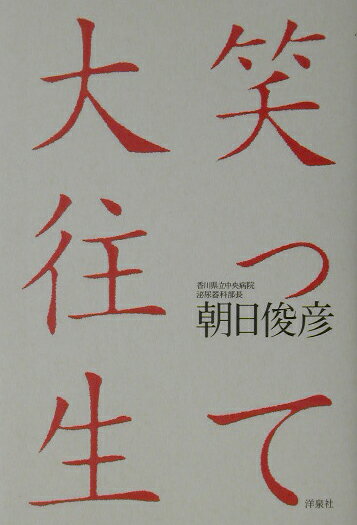 笑って
大往生
香川県立中央病院
泌尿器科部長
朝日俊彦
洋泉社